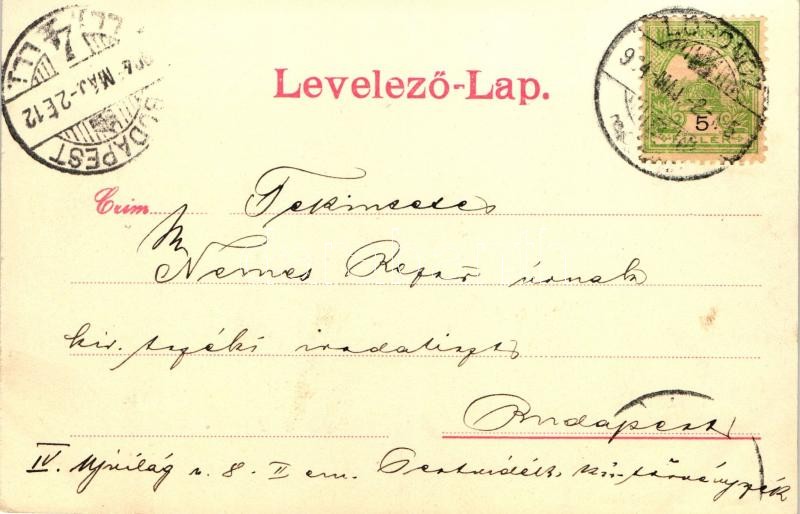 Levelező-Lap.
LOSONCZ
5
BUDAPEST
MÁJ.-2.E12
Czim
Tekintetes
Nemes Rezső úrnak
kir. tszéki irodatiszt
Budapest
IV. Ujvilág u. 8. II em. Pestvidéki kir. törvényszék